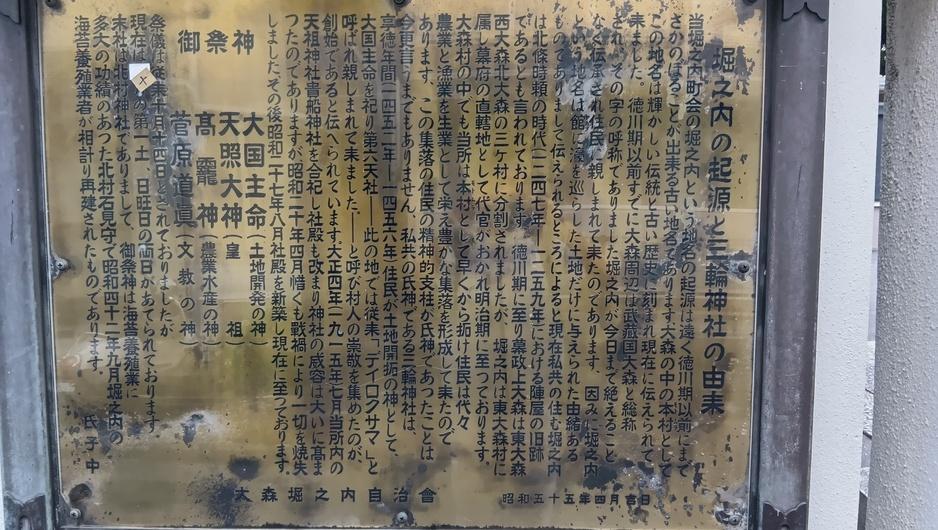 堀之内の起源と三輪神社の由来
当堀之内町会の堀之内という地名の起源は遠く徳川期以前にまで
さかのぼることが出来る古い地名であります大森の中の本村として
この地名は輝かしい伝統と古い歴史に刻まれ現在に伝えられて
来ました。徳川期以前すでに大森周辺は武蔵国大森と総称
され、その字の呼称でありました堀之内が今日まで絶えること
なく伝承され住民に親しまれて来たのであります。因みに堀之内
という地名は館に濠を巡らした土地だけに与えられた由緒ある
ものであります。伝えられるところによると現在私共の住む堀之内
は北條時頼の時代(一二四七年―一二五九年)における陣屋の旧跡
であるとも言われております。徳川期に至り幕政上大森は東大森
西大森北大森の三ケ村に分割されましたが、堀之内は東大森村に
属し幕府の直轄地として代官がおかれ明治期に至っております。
大森村の中でも当所は本村として早くから拓け住民は代々
農業と漁業を生業として栄え豊かな集落を形成して来たので
あります。この集落の住民の精神的支柱が氏神であったことは
今更言うまでもありません。私共の氏神である三輪神社は、
享徳年間(一四五二年―一四五六年)住民が土地開拓の神として、
大国主命を祀り第六天社――此の地では従来、「デイロクサマ」と
呼ばれ親しまれて来ました――と呼び村人の崇敬を集めたのが、
創始であると伝へられています大正四年(一九一五年)七月当所内の
天祖神社貴船神社を合祀し社殿も改まり神社の威容は大いに高ま
ったのでありますが昭和二十年四月惜くも戦禍により一切を焼失
しましたその後昭和二十七年八月社殿を新築し現在に至っております。
御祭神
大国主命(土地開発の神)
天照大神(皇祖)
高龗神(農業水産の神)
菅原道眞(文教の神)
祭儀は従来十月十四日とされておりましたが
現在は の第一土、日旺日の両日があてられております
末社は北村神社でありまして、御祭神は海苔養殖業に
多大の功績のあった北村石見守で昭和四十二年九月堀之内の
海苔養殖業者が相計り再建されたものであります。
氏子中
昭和五十五年四月吉日
大森堀之内自治會